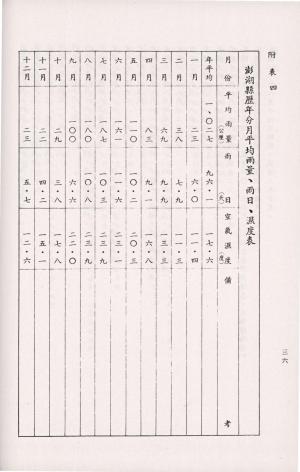 附表四
澎湖縣歷年分月平均雨量、雨日、濕度表
月份 平均雨量(公厘) 雨日(天) 空氣濕度(度) 備考
年平均 一、〇二七 九六・一 一七・六
一月 二三 六・〇 一一・四
二月 三八 七・九 一一・三
三月 六九 九・二 一三・三
四月 八三 九・一 一六・八
五月 一一〇 一〇・二 二〇・三
六月 一六一 二三・一
七月 一八七 二三・九
八月 一八〇 一〇・八 二三・九
九月 一〇〇 六・六 二二・〇
十月 二九 三・三 一七・八
十一月 二二 四・二 一五・一
十二月 二三 五・七 一二・六
三六